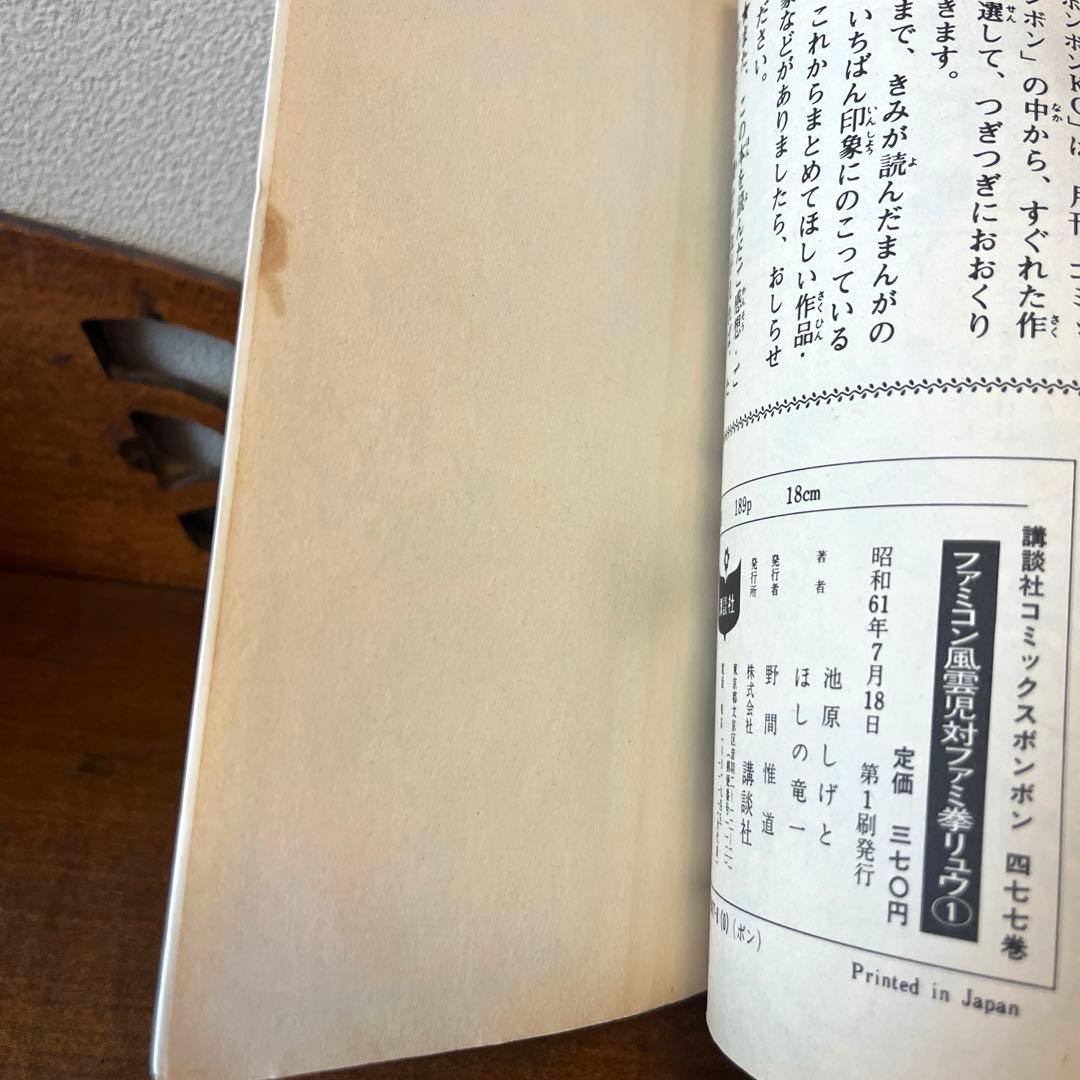 ボンボンKC」は、月刊「コミッ
ボン」の中から、すぐれた作
選して、つぎつぎにおおくり
きます。
まで、きみが読んだまんがの
いちばん印象にのこっている
これからまとめてほしい作品・
などがありましたら、おしらせ
ださい。
★また、この本を読んだご感想
講談社コミックスボンボン 四七七巻
ファミコン風雲児対ファミ拳リュウ①
定価 三七〇円
昭和61年7月18日 第1刷発行
著者 池原しげと
ほしの竜一
発行者 野間惟道
発行所 株式会社 講談社
東京都文京区音羽二-一二-二一
講談社
189p 18cm
(0)(ボン)
Printed in Japan